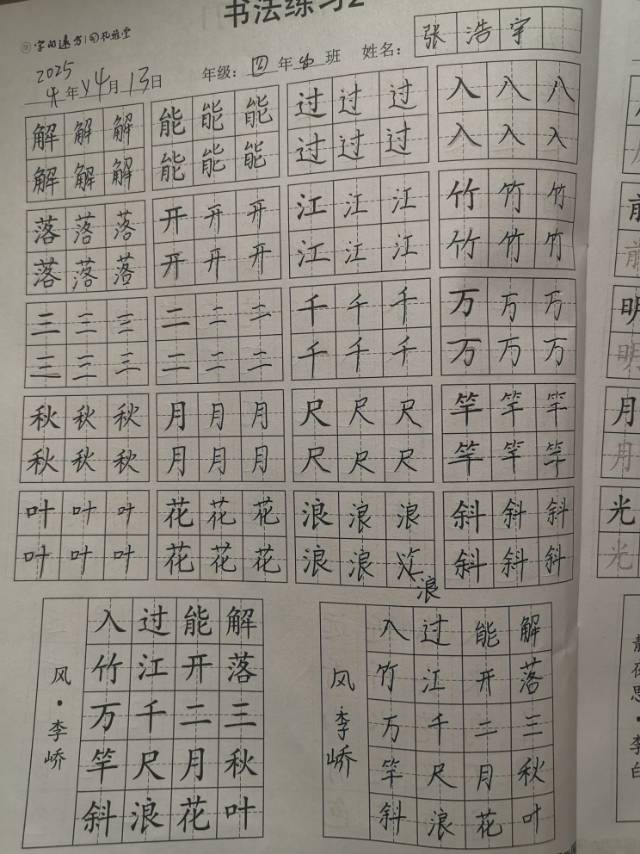 书法练习2
2025年4月13日 年级:四年 班 姓名:张浩宇
解解解 能能能 过过过 入八八
解解解 能能能 过过过 入入入
落落落 开开开 江江江 竹竹竹
落落落 开开开 江江江 竹竹竹
三三三 二二二 千千千 万万万
三三三 二二二 千千千 万万万
秋秋秋 月月月 尺尺尺 竿竿竿
秋秋秋 月月月 尺尺尺 竿竿竿
叶叶叶 花花花 浪浪浪 斜斜斜
叶叶叶 花花花 浪浪 斜斜斜
浪
风·李峤
解落三秋叶
能开二月花
过江千尺浪
入竹万竿斜
风·李峤
解落三秋叶
能开二月花
过江千尺浪
入竹万竿斜
前
前
明
明
月
月
光
光